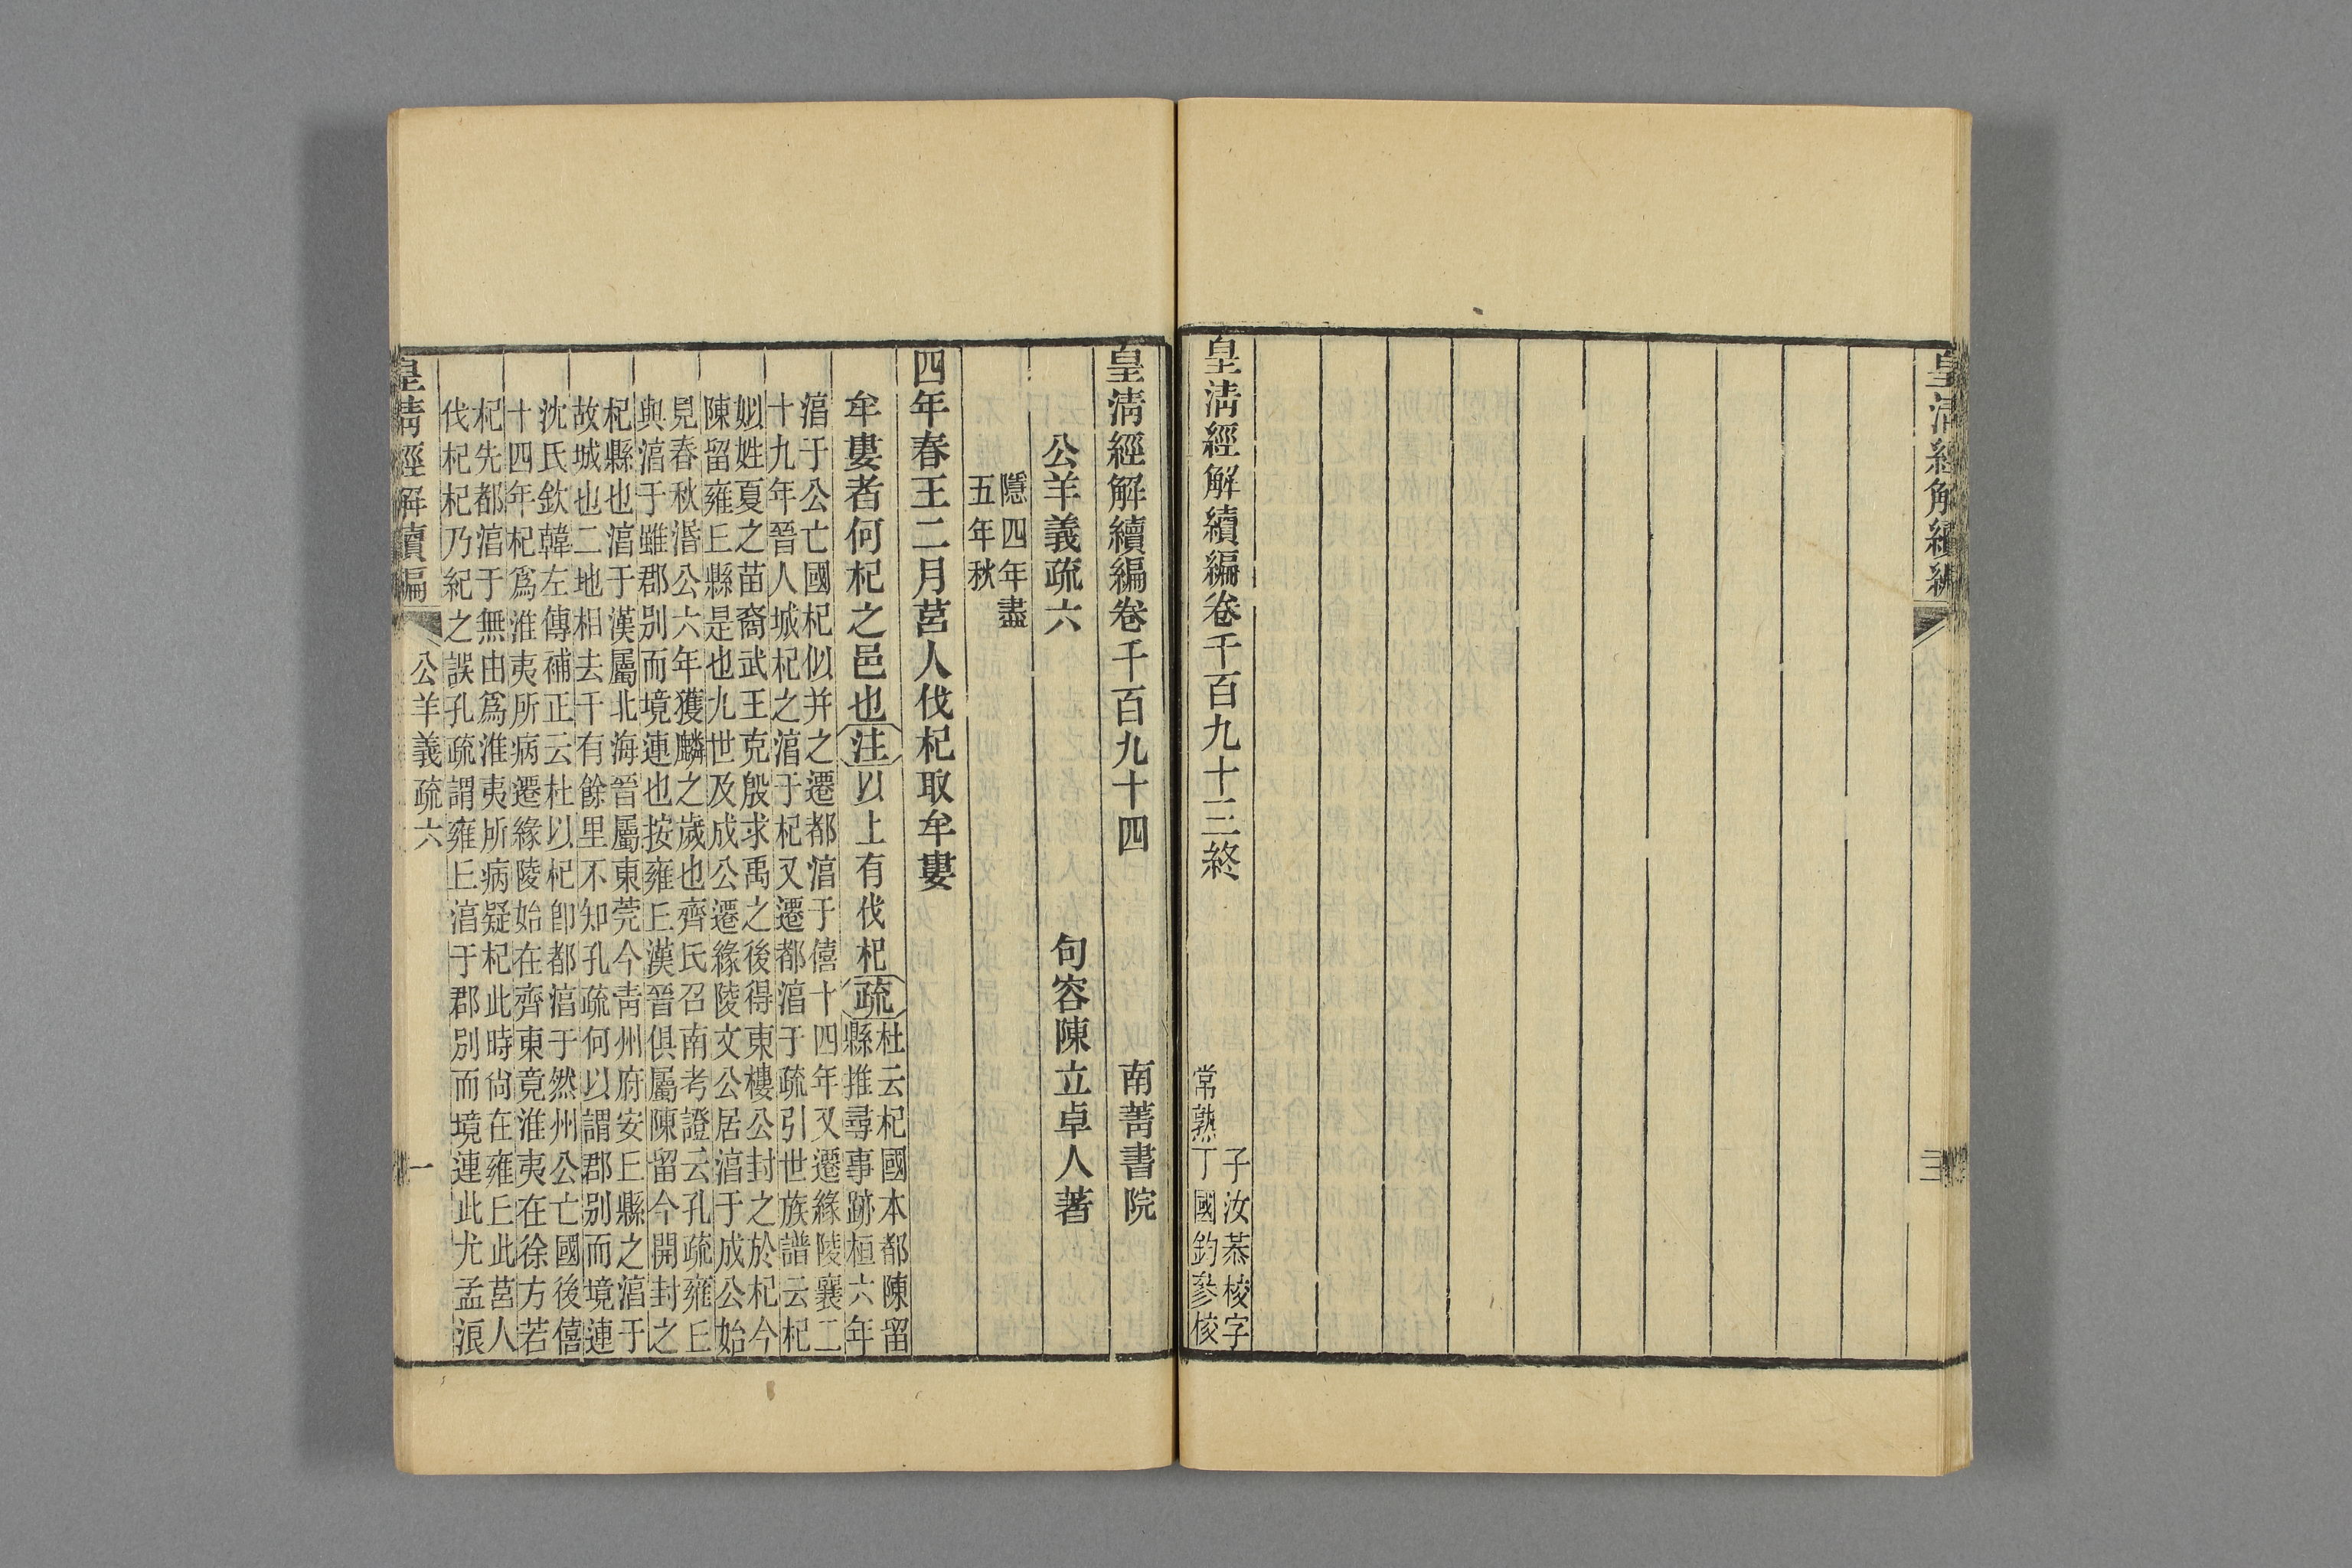 皇清經解續編
皇清經解續編卷千百九十三終
子汝恭校字
常熟丁國鈞參校
皇清經解續編卷千百九十四 南菁書院
公羊義疏六 句容陳立卓人著
隱四年盡
五年秋
四年春王二月莒人伐杞取牟婁
牟婁者何杞之邑也注以上有伐杞疏
杜云杞國本都陳留
縣推尋事跡桓六年
湻于公亡國杞似并之遷都湻于僖十四年又遷緣陵襄二
十九年晉人城杞之湻于杞又遷都湻于疏引世族譜云杞
姒姓夏之苗裔武王克殷求禹之後得東樓公封之於杞今
陳留雍丘縣是也九世及成公遷緣陵文公居湻于成公始
見春秋湣公六年獲麟之歲也齊氏召南考證云孔疏雍丘
與湻于雖郡別而境連也按雍丘漢晉俱屬陳留今開封之
杞縣也湻于漢屬北海晉屬東莞今青州府安丘縣之湻于
故城也二地相去千有餘里不知孔疏何以謂郡別而境連
沈氏欽韓左傳補正云杜以杞卽都湻于然州公亡國後僖
十四年杞爲淮夷所病遷緣陵始在齊東竟淮夷在徐方若
杞先都湻于無由爲淮夷所病疑杞此時尙在雍丘此莒人
伐杞杞乃紀之誤孔疏謂雍丘湻于郡別而境連此尤孟浪
皇清經解續編 公羊義疏六 一